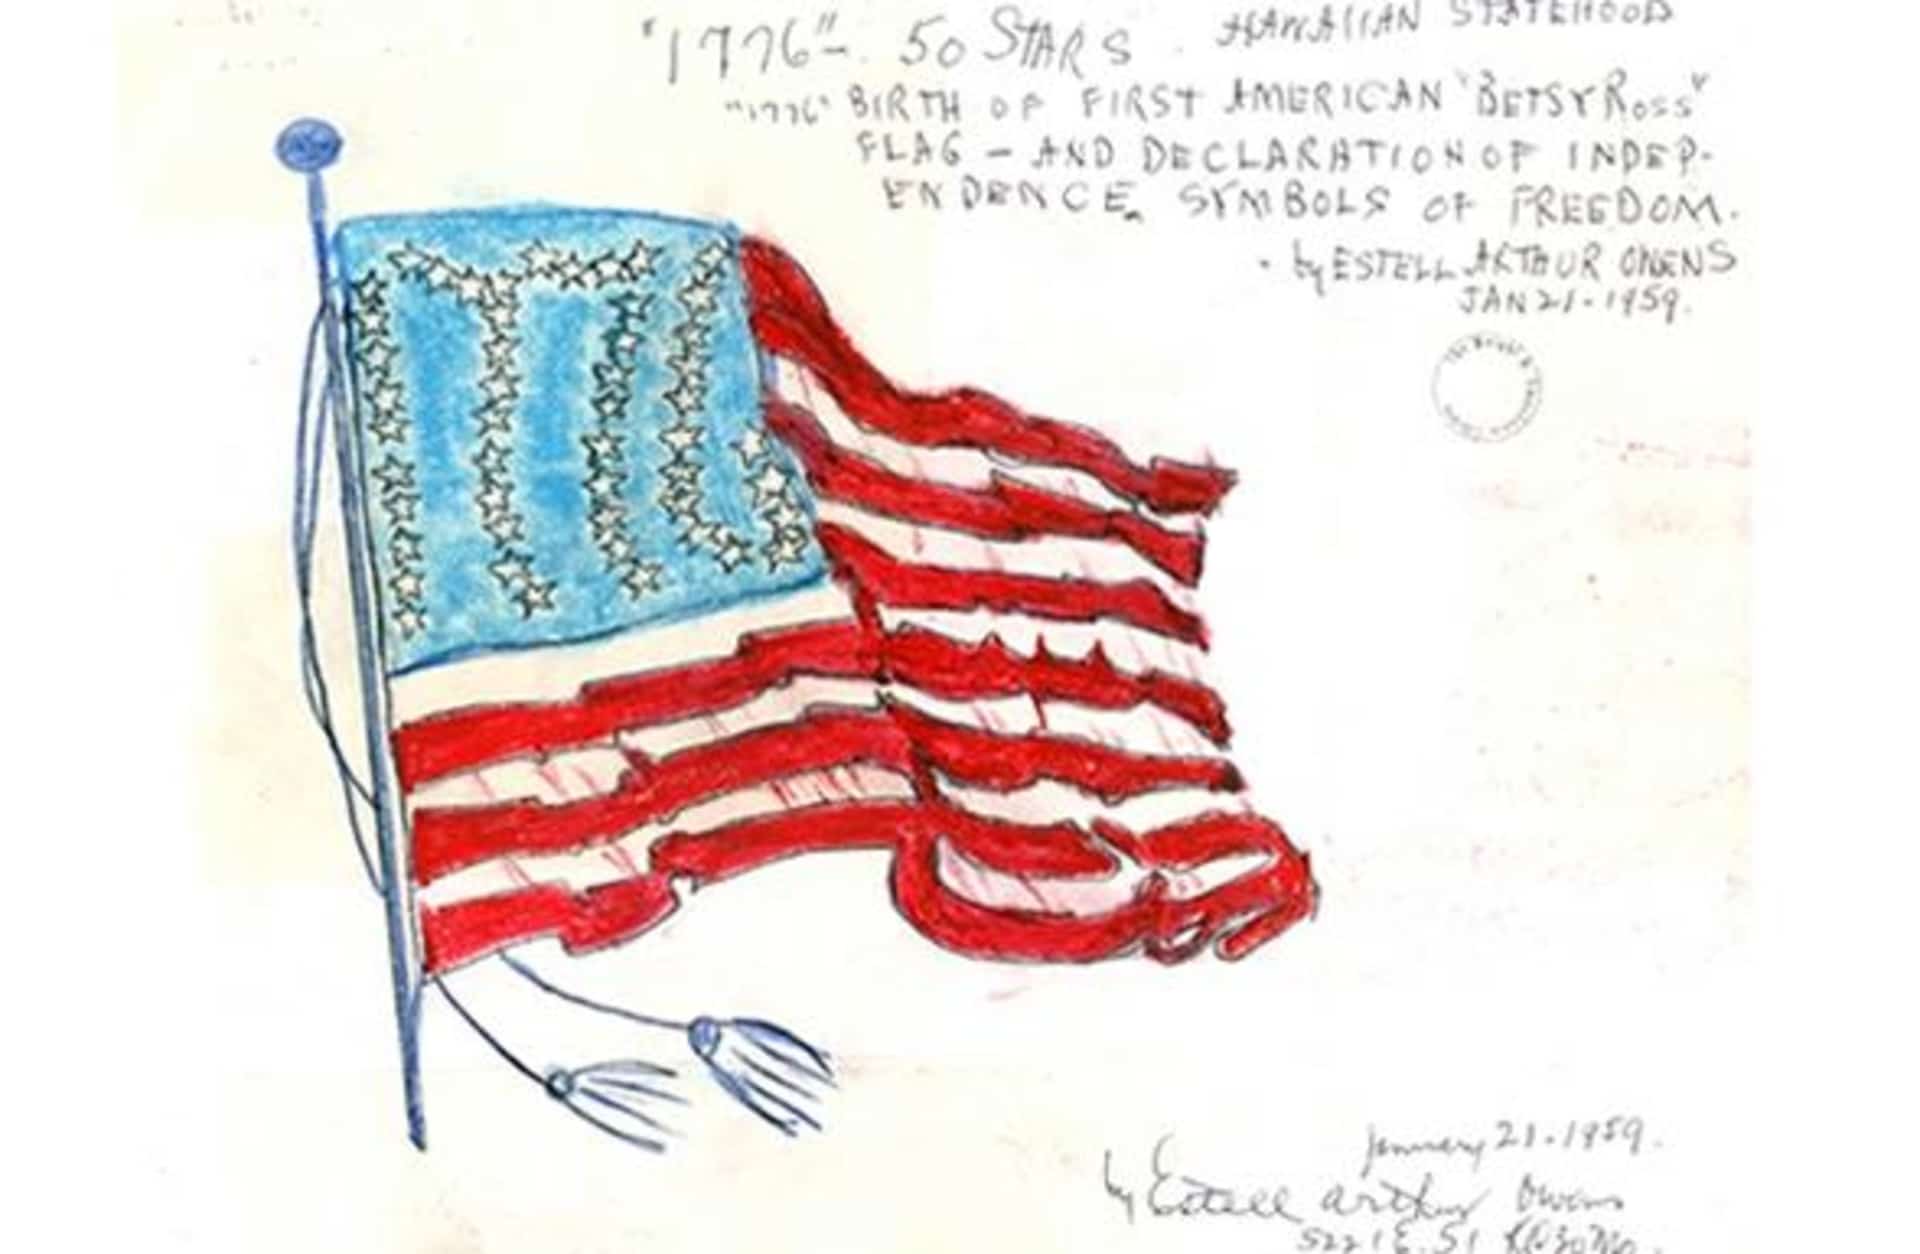 "1776" - 50 STARS. HAWAIIAN STATEHOOD
"1776" BIRTH OF FIRST AMERICAN "BETSY ROSS"
FLAG - AND DECLARATION OF INDEP-
ENDENCE. SYMBOLS OF FREEDOM.
- by ESTELL ARTHUR OWENS
JAN 21 - 1959.
January 21 - 1959.
by Estell Arthur Owens
5221 E. 51